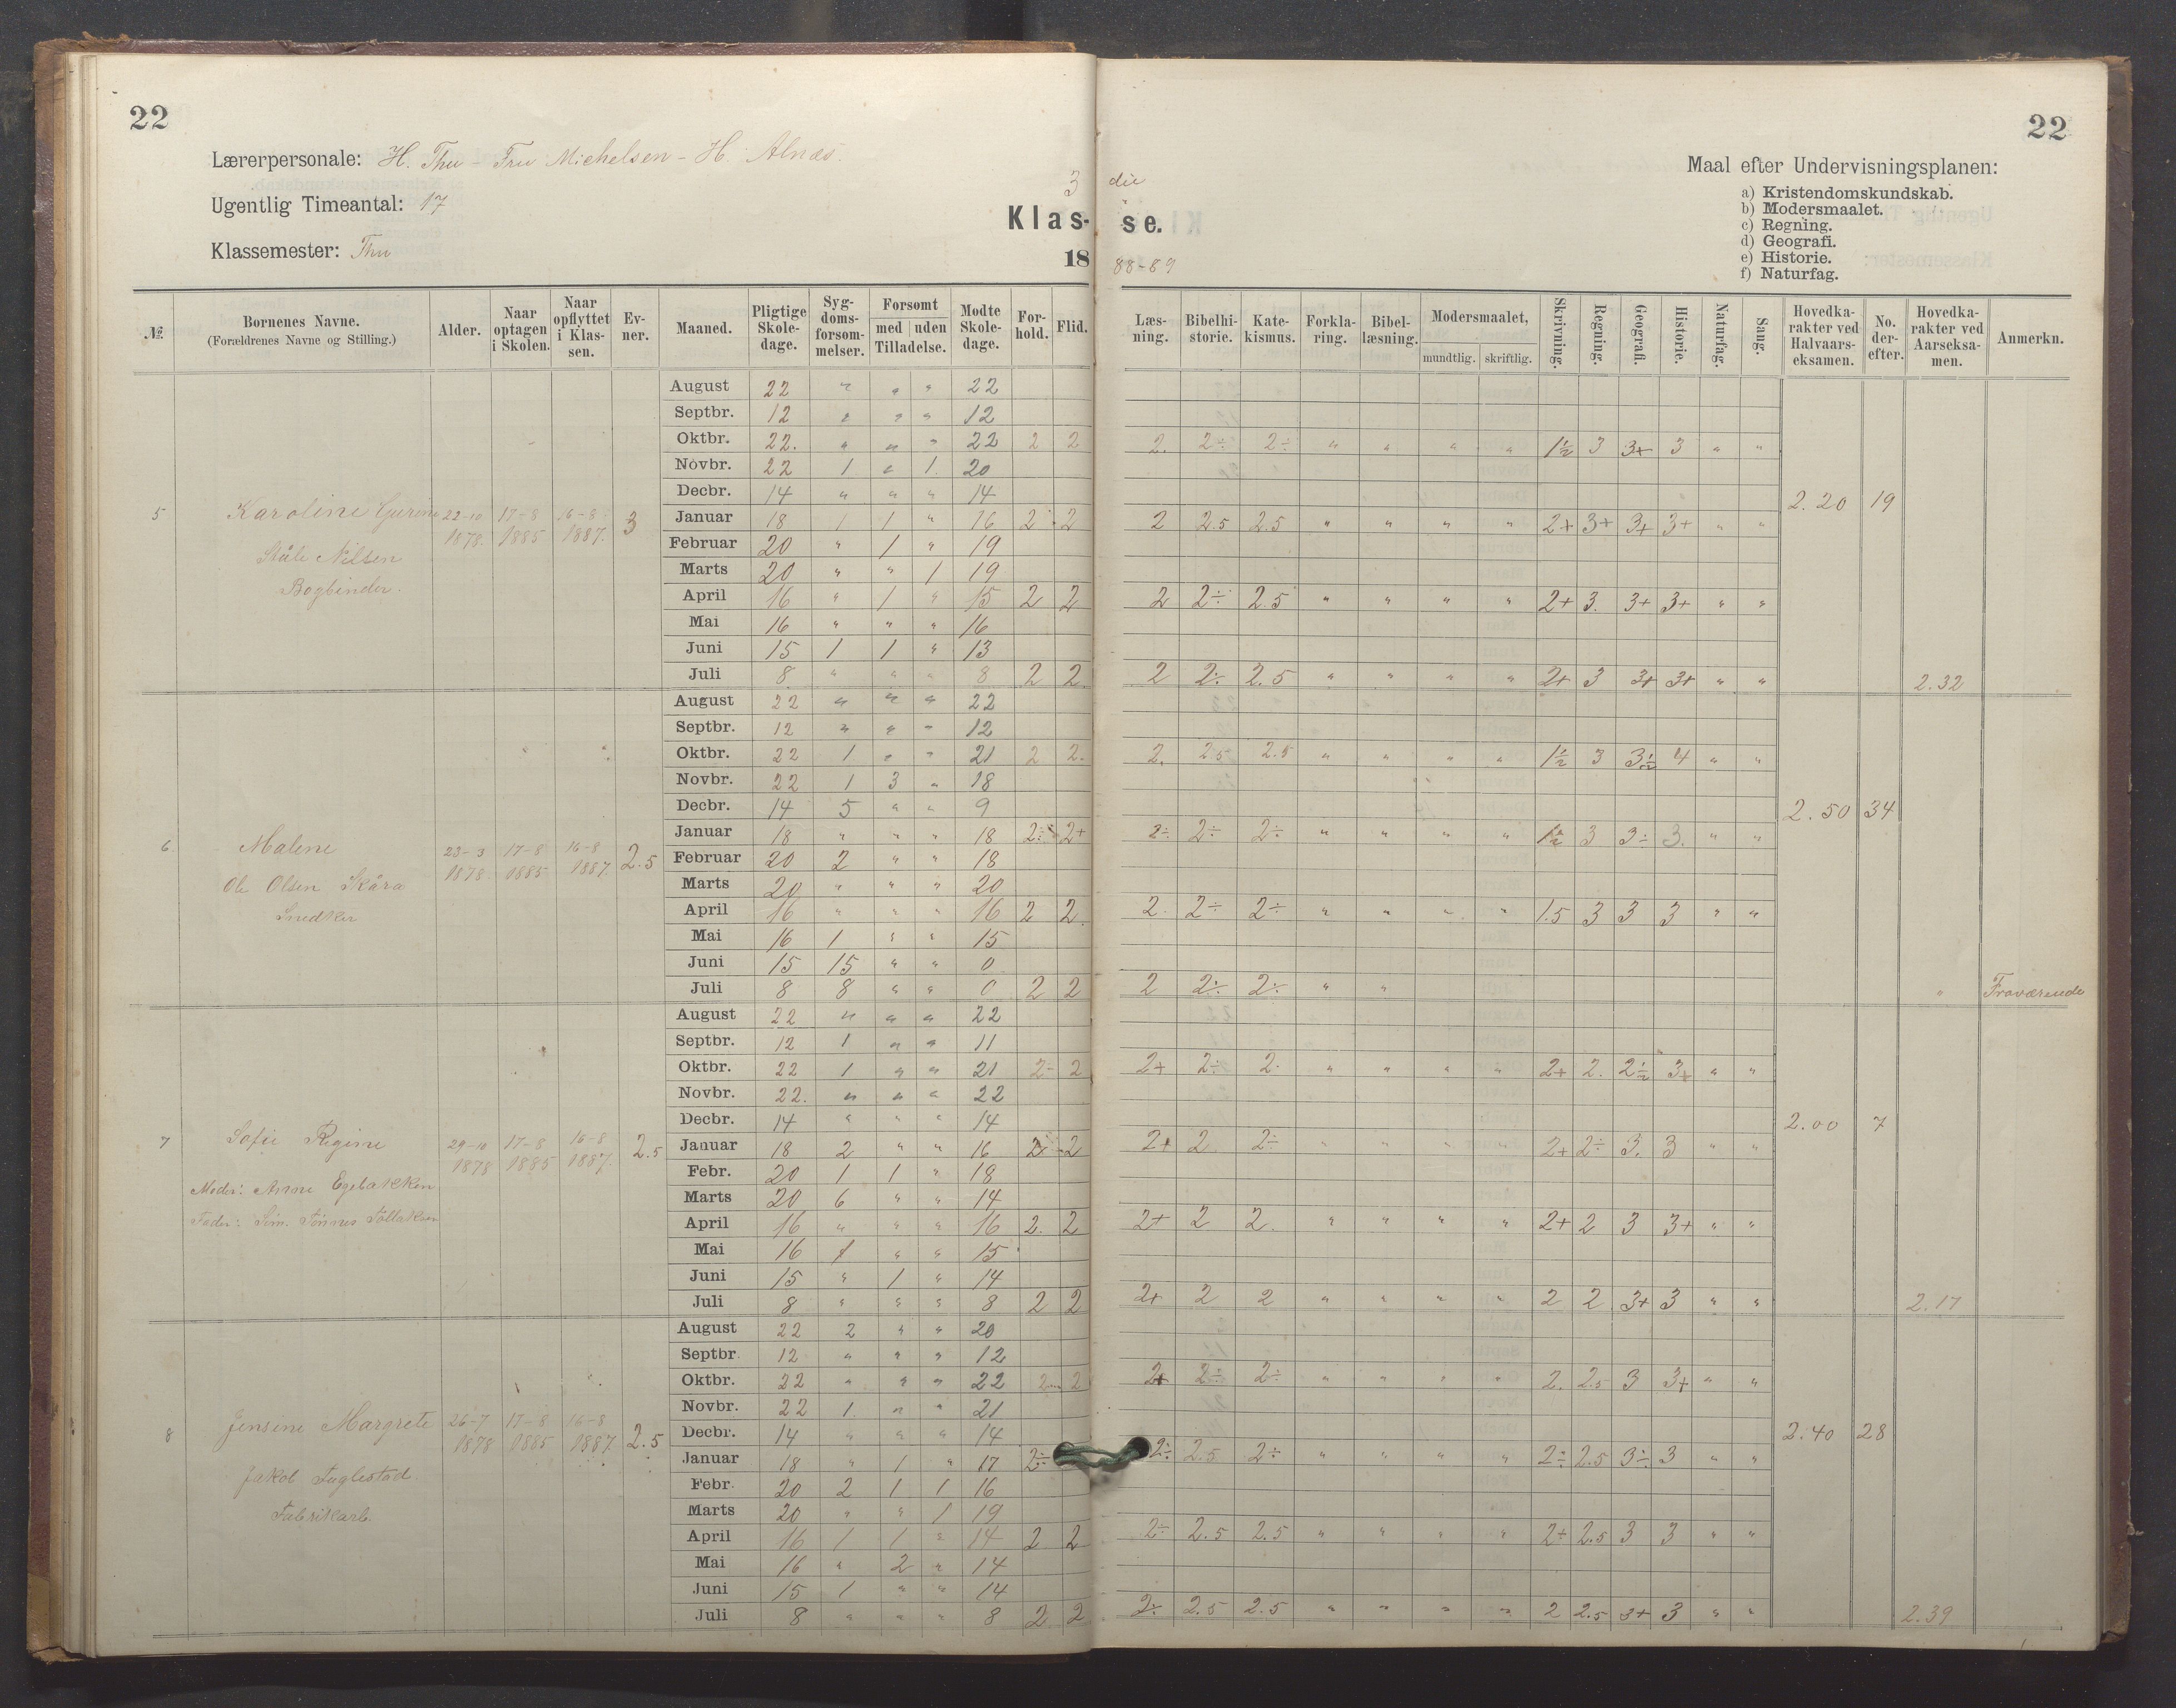 22
22
Lærerpersonale: H. Thu - Fru Michelsen - H. Alnæs.
Ugentlig Timeantal: 17
Klassemester: Thu
3 die
Klas- se.
18 88-89
Maal efter Undervisningsplanen:
a) Kristendomskundskab.
b) Modersmaalet.
c) Regning.
d) Geografi.
e) Historie.
f) Naturfag.
№ Børnenes Navne. (Forældrenes Navne og Stilling.) Alder. Naar optagen i Skolen. Naar opflyttet i Klassen. Evner. Maaned. Pligtige Skoledage. Sygdomsforsømmelser. Forsømt med uden Tilladelse. Mødte Skoledage. Forhold. Flid. Læsning. Bibelhistorie. Katekismus. Forklaring. Bibellæsning. Modersmaalet, mundtlig. skriftlig. Skrivning. Regning. Geografi. Historie. Naturfag. Sang. Hovedkarakter ved Halvaarseksamen. No. derefter. Hovedkarakter ved Aarseksamen. Anmerkn.
5 Karoline Gurine 22-10 1878. 17-8 1885 16-8 1887. 3
Ståle Nilsen
Bogbinder.
August 22 " " " 22
Septbr. 12 " " " 12
Oktbr. 22. " " " 22 2 2 2. 2÷ 2÷ " " " " 1½ 3 3+ 3 " "
Novbr. 22 1 " 1. 20
Decbr. 14 " " " 14 2.20 19
Januar 18 1 1 " 16 2 2 2 2.5 2.5 " " " " 2+ 3+ 3+ 3+ " "
Februar 20 " 1 " 19
Marts 20 " " 1 19
April 16 " 1 " 15 2 2 2 2÷ 2.5 " " " " 2+ 3. 3+ 3+ " "
Mai 16 " " " 16
Juni 15 1 1 " 13
Juli 8 " " " 8 2 2 2 2÷ 2.5 " " " " 2+ 3 3+ 3+ " " 2.32
6 Malene 23-3 1878. 17-8 1885 16-8 1887. 2.5
Ole Olsen Skåra
Snedker
August 22 " " " 22
Septbr. 12 " " " 12
Oktbr. 22 1 " " 21 2 2. 2. 2.5 2.5 " " " " 1½ 3 3½ 4 " "
Novbr. 22 1 3 " 18
Decbr. 14 5 " " 9 2.50 34
Januar 18 " " " 18 2÷ 2+ 2÷ 2÷ 2÷ " " " " 1½ 3 3÷ 3. " "
Februar 20 2 " " 18
Marts 20 " " " 20
April 16 " " " 16 2 2. 2. 2÷ 2÷ " " " " 1.5 3 3 3 " "
Mai 16 1 " " 15
Juni 15 15 " " 0
Juli 8 8 " " 0 2 2 2 2÷ 2÷ " " " Fraværende
7 Sofie Regine 29-10 1878 17-8 1885 16-8 1887. 2.5
Moder: Anne Egebakken
Fader: Sim. Tønnes
August 22 " " " 22
Septbr. 12 1 " " 11
Oktbr. 22 1 " " 21 2- 2 2+ 2÷ 2. " " " " 2+ 2. 2½ 3+ " "
Novbr. 22. " " " 22
Decbr. 14 " " " 14 2.00 7
Januar 18 2 " " 16 2 2 2+ 2 2÷ " " " " 2+ 2÷ 3. 3 " "
Febr. 20 1 1 " 18
Marts 20 6 " " 14
April 16 " " " 16 2. 2 2+ 2 2. " " " " 2+ 2 3 3+ " "
Mai 16 1 " " 15
Juni 15 " 1 " 14
Juli 8 " " " 8 2 2 2+ 2 2 " " " " 2 2 3+ 3 " " 2.17
8 Jensine Margrete 26-7 1878 17-8 1885 16-8 1887 2.5
Jakob Fuglestad.
Fabrikarb.
August 22 2 " " 20
Septbr. 12 " " " 12
Oktbr. 22 " " " 22 2 2 2+ 2÷ 2÷ " " " " 2. 2.5 3 3+ " "
Novbr. 22 1 " " 21
Decbr. 14 " " " 14 2.40 28
Januar 18 " 1 " 17 2÷ 2÷ 2.5 2÷ " " " " 2÷ 2.5 3÷ 3 " "
Febr. 20 2 1 1 16
Marts 20 " " 1 19
April 16 1 1 " 14 2 2 2÷ 2.5 2.5 " " " " 2÷ 2.5 3 3 " "
Mai 16 " 2 " 14
Juni 15 1 " " 14
Juli 8 " " " 8 2 2 2÷ 2.5 2.5 " " " " 2 2.5 3+ 3 " " 2.39